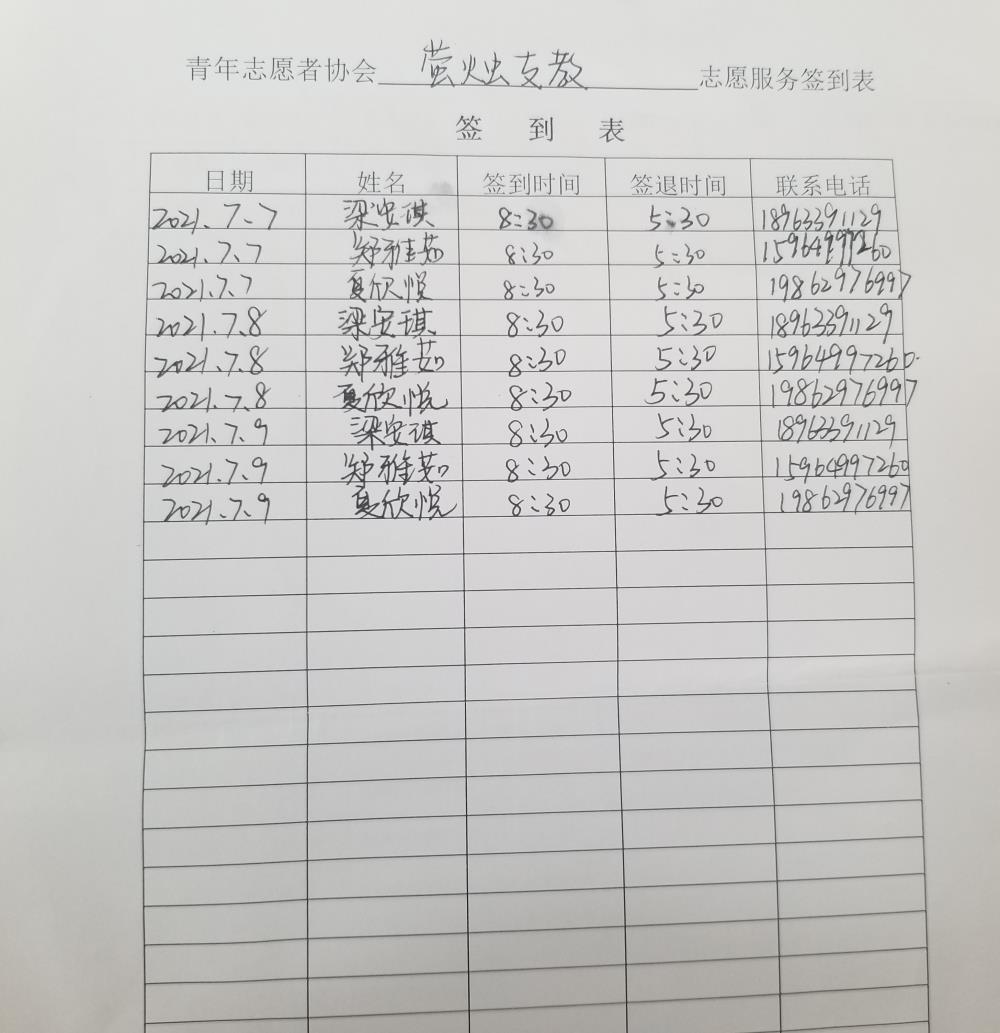 青年志愿者协会 萤烛支教 志愿服务签到表
签 到 表
日期 姓名 签到时间 签退时间 联系电话
2021.7.7 梁安琪 8:30 5:30 18963391129
2021.7.7 郑雅茹 8:30 5:30 15964997260
2021.7.7 夏欣悦 8:30 5:30 19862976997
2021.7.8 梁安琪 8:30 5:30 18963391129
2021.7.8 郑雅茹 8:30 5:30 15964997260
2021.7.8 夏欣悦 8:30 5:30 19862976997
2021.7.9 梁安琪 8:30 5:30 18963391129
2021.7.9 郑雅茹 8:30 5:30 15964997260
2021.7.9 夏欣悦 8:30 5:30 19862976997